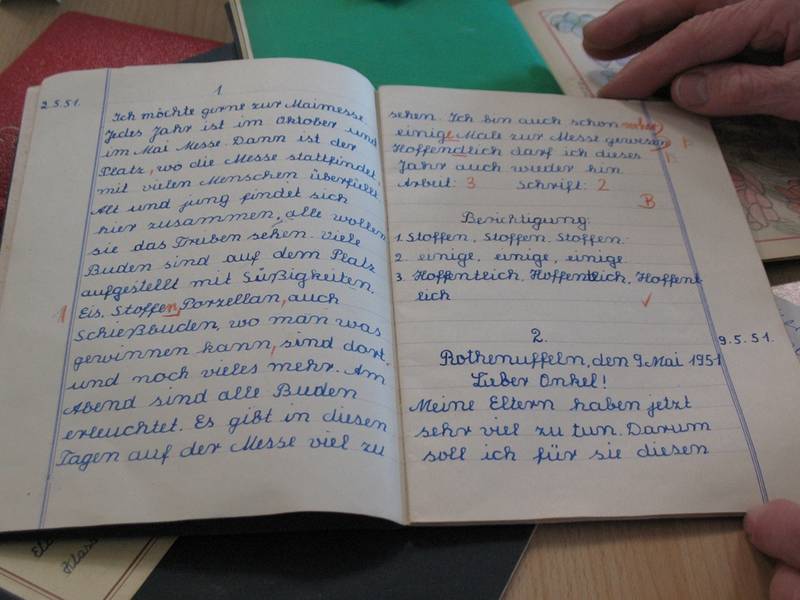 1
2.5.51.
Ich möchte gerne zur Maimesse.
Jedes Jahr ist im Oktober und
im Mai Messe. Dann ist der
Platz, wo die Messe stattfindet,
mit vielen Menschen überfüllt.
Alt und jung findet sich
hier zusammen, alle wollen
sie das Truben sehen. Viele
Buden sind auf dem Platz
aufgestellt mit Süßigkeiten,
Eis, Stoffen, Porzellan, auch
Schießbuden, wo man was
gewinnen kann, sind dort
und noch vieles mehr. Am
Abend sind alle Buden
erleuchtet. Es gibt in diesen
Tagen auf der Messe viel zu
sehen. Ich bin auch schon
einige Male zur Messe gewesen
Hoffendlich darf ich dieses
Jahr auch wieder hin.
Arbeit: 3 Schrift: 2
B
Berichtigung:
1. Stoffen, Stoffen, Stoffen.
2. einige, einige, einige.
3. Hoffentlich, Hoffentlich, Hoffent
lich
2.
9.5.51.
Rothenuffeln, den 9 Mai 1951
Lieber Onkel!
Meine Eltern haben jetzt
sehr viel zu tun. Darum
soll ich für sie diesen